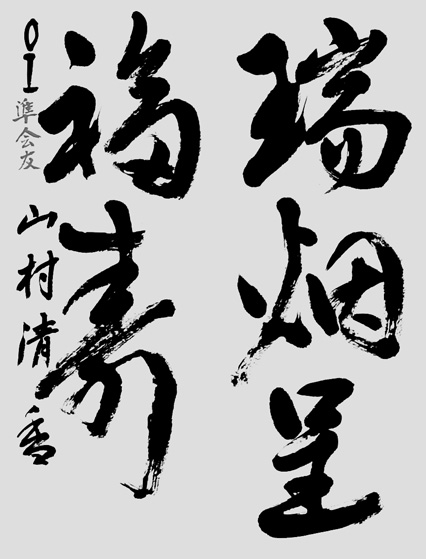 瑞烟呈
福寿
01準会友 山村清香